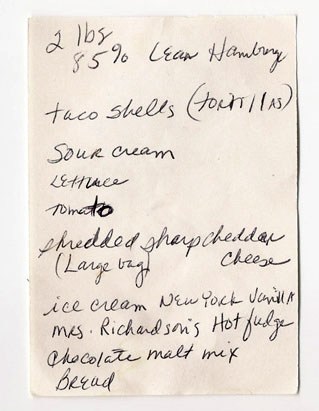 2 lbs
85% Lean Hamburg
taco shells (tortillas)
Sour cream
Lettuce
tomato
shredded sharp cheddar
(Large bag) cheese
ice cream New York Vanilla
Mrs. Richardson's Hot fudge
chocolate malt mix
Bread